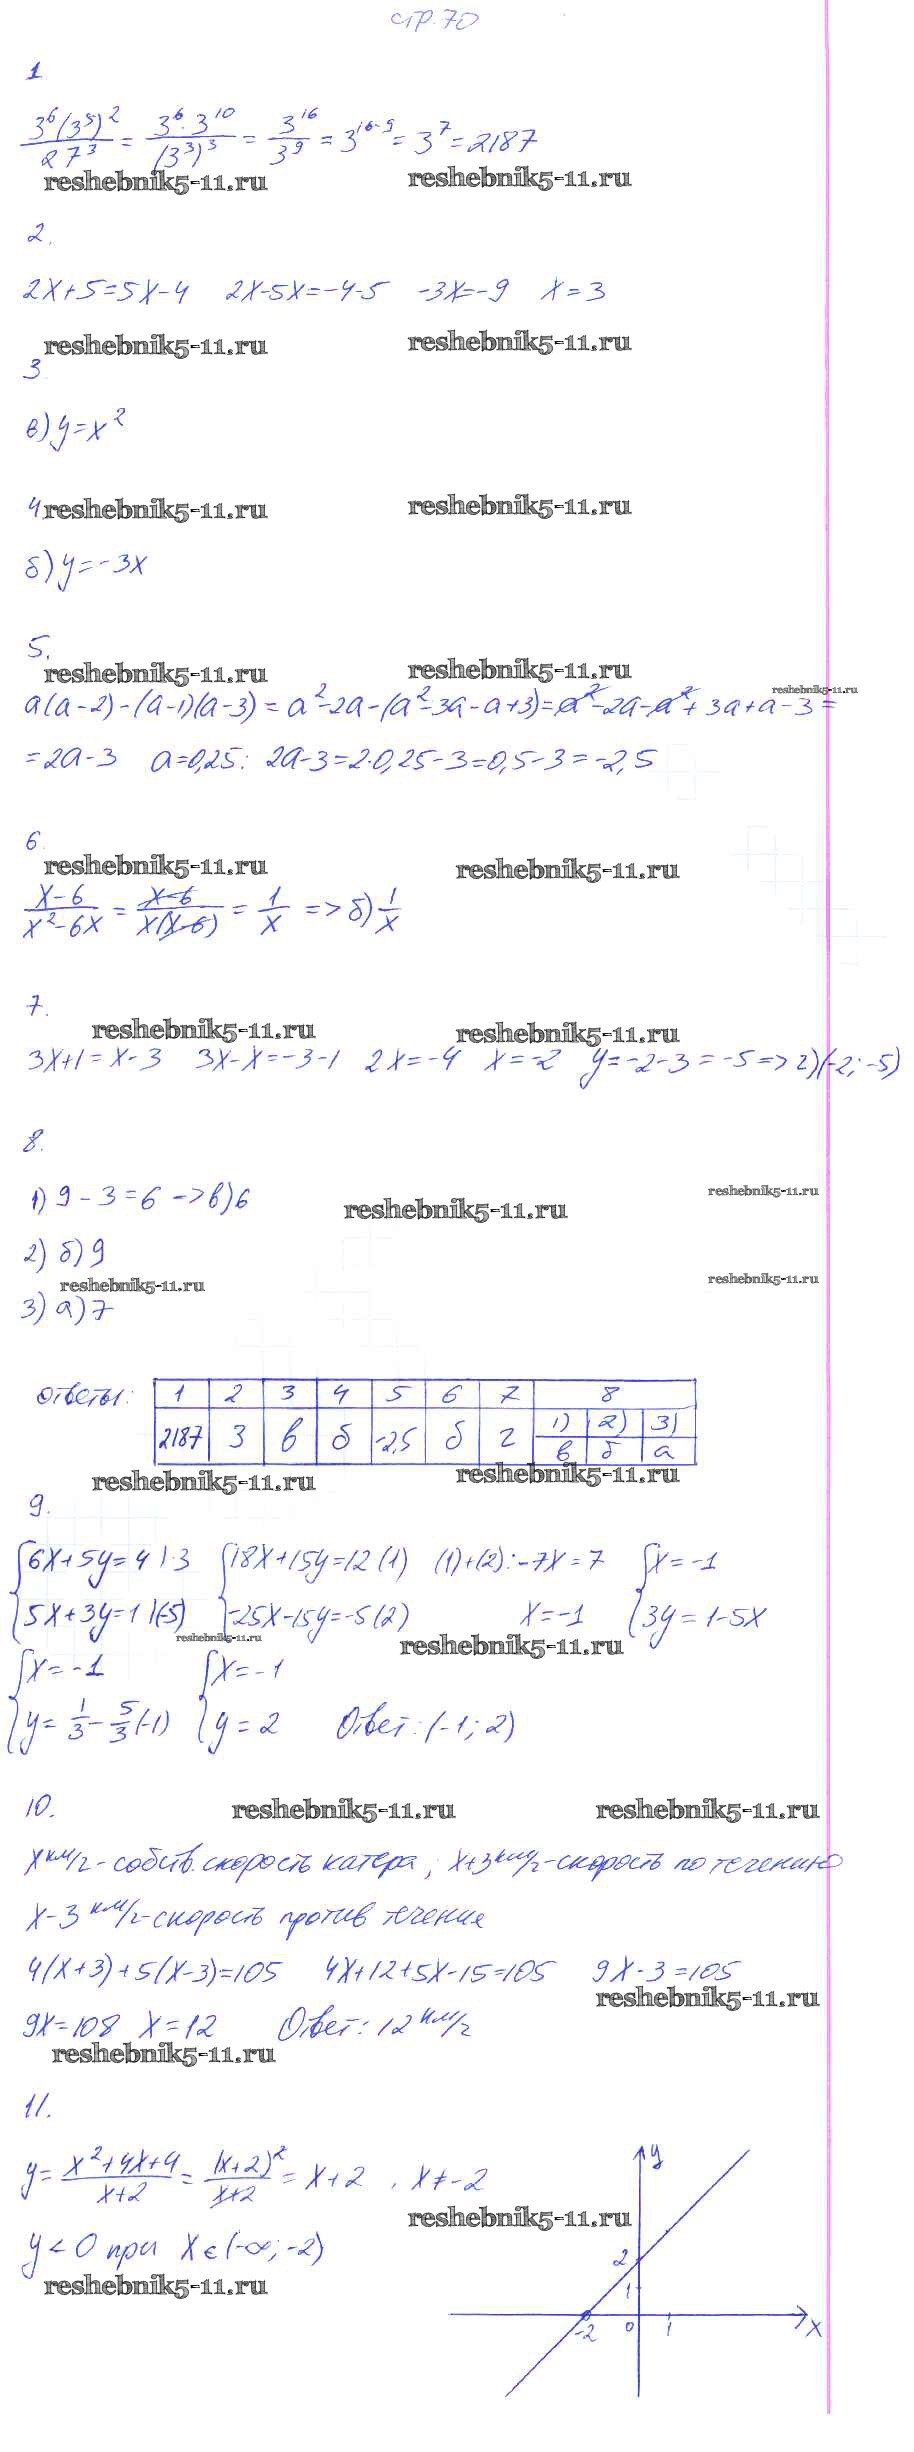 стр. 70
1
3^6(3^5)^2 / 27^3 = 3^6·3^10 / (3^3)^3 = 3^16 / 3^9 = 3^16-9 = 3^7 = 2187
reshebnik5-11.ru reshebnik5-11.ru
2.
2x+5=5x-4 2x-5x=-4-5 -3x=-9 x=3
reshebnik5-11.ru reshebnik5-11.ru
3
в) y=x^2
4 reshebnik5-11.ru reshebnik5-11.ru
б) y=-3x
5.
reshebnik5-11.ru reshebnik5-11.ru reshebnik5-11.ru
a(a-2)-(a-1)(a-3)=a^2-2a-(a^2-3a-a+3)=a^2-2a-a^2+3a+a-3=
=2a-3 a=0,25: 2a-3=2·0,25-3=0,5-3=-2,5
6.
reshebnik5-11.ru reshebnik5-11.ru
x-6 / x^2-6x = x-6 / x(x-6) = 1 / x => б) 1 / x
7.
reshebnik5-11.ru reshebnik5-11.ru
3x+1=x-3 3x-x=-3-1 2x=-4 x=-2 y=-2-3=-5=> г)(-2; -5)
8.
1) 9-3=6 -> в) 6 reshebnik5-11.ru reshebnik5-11.ru
2) б) 9
reshebnik5-11.ru reshebnik5-11.ru
3) а) 7
ответы: 1 2 3 4 5 6 7 8
2187 3 в б -2,5 б г 1) 2) 3)
в б а
reshebnik5-11.ru reshebnik5-11.ru
9.
{6x+5y=4 |·3 {18x+15y=12 (1) (1)+(2): -7x=7 {x=-1
{5x+3y=1 |(-5) {-25x-15y=-5 (2) x=-1 {3y=1-5x
reshebnik5-11.ru reshebnik5-11.ru
{x=-1 {x=-1
{y=1/3-5/3(-1) {y=2 Ответ: (-1; 2)
10. reshebnik5-11.ru reshebnik5-11.ru
x км/г - собств. скорость катера; x+3 км/г - скорость по течению
x-3 км/г - скорость против течения
4(x+3)+5(x-3)=105 4x+12+5x-15=105 9x-3=105
reshebnik5-11.ru
9x=108 x=12 Ответ: 12 км/г
reshebnik5-11.ru
11.
y = x^2+4x+4 / x+2 = (x+2)^2 / x+2 = x+2 , x≠-2
reshebnik5-11.ru
y<0 при x∈(-∞; -2)
reshebnik5-11.ru
y
2
1
-2 0 1 x